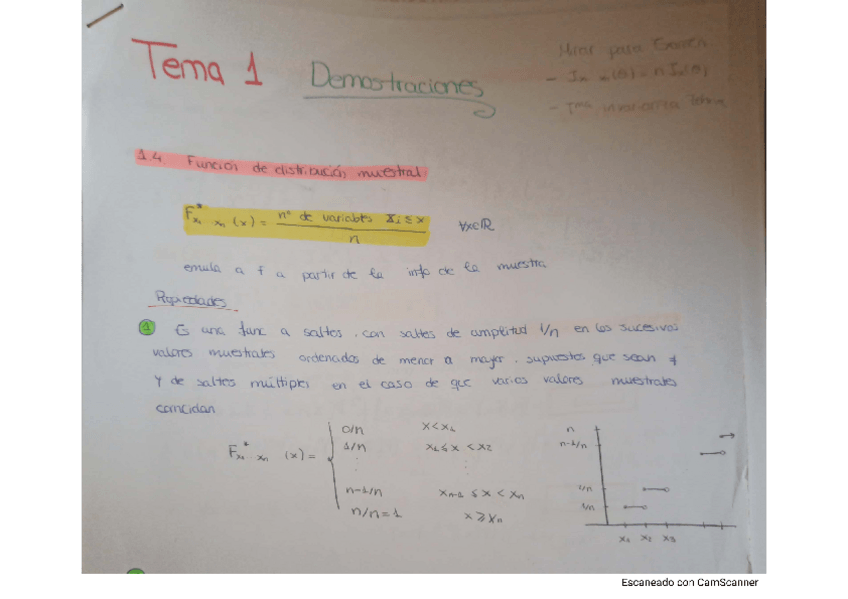 Tema 1 Demostraciones
Mirar para Examen
- I x1 xn (θ) = n Ix(θ)
- Tma invariorza Zehna
1.4. Función de distribución muestral
F*x1 xn (x) = nº de variables Xi ≤ x / n ∀x∈ℝ
emula a F a partir de la info de la muestra
Propiedades
① Es una func a saltos, con saltos de amplitud 1/n en los sucesivos
valores muestrales ordenados de menor a mayor, supuestos que sean ≠
Y de saltos múltiples en el caso de que varios valores muestrales
coincidan
F*x1 xn (x) =
0/n x<x1
1/n x1 ≤ x < x2
n-1/n xn-1 ≤ x < xn
n/n=1 x ≥ xn
n
n-1/n
1/n
1/n
x1 x2 x3
Escaneado con CamScanner